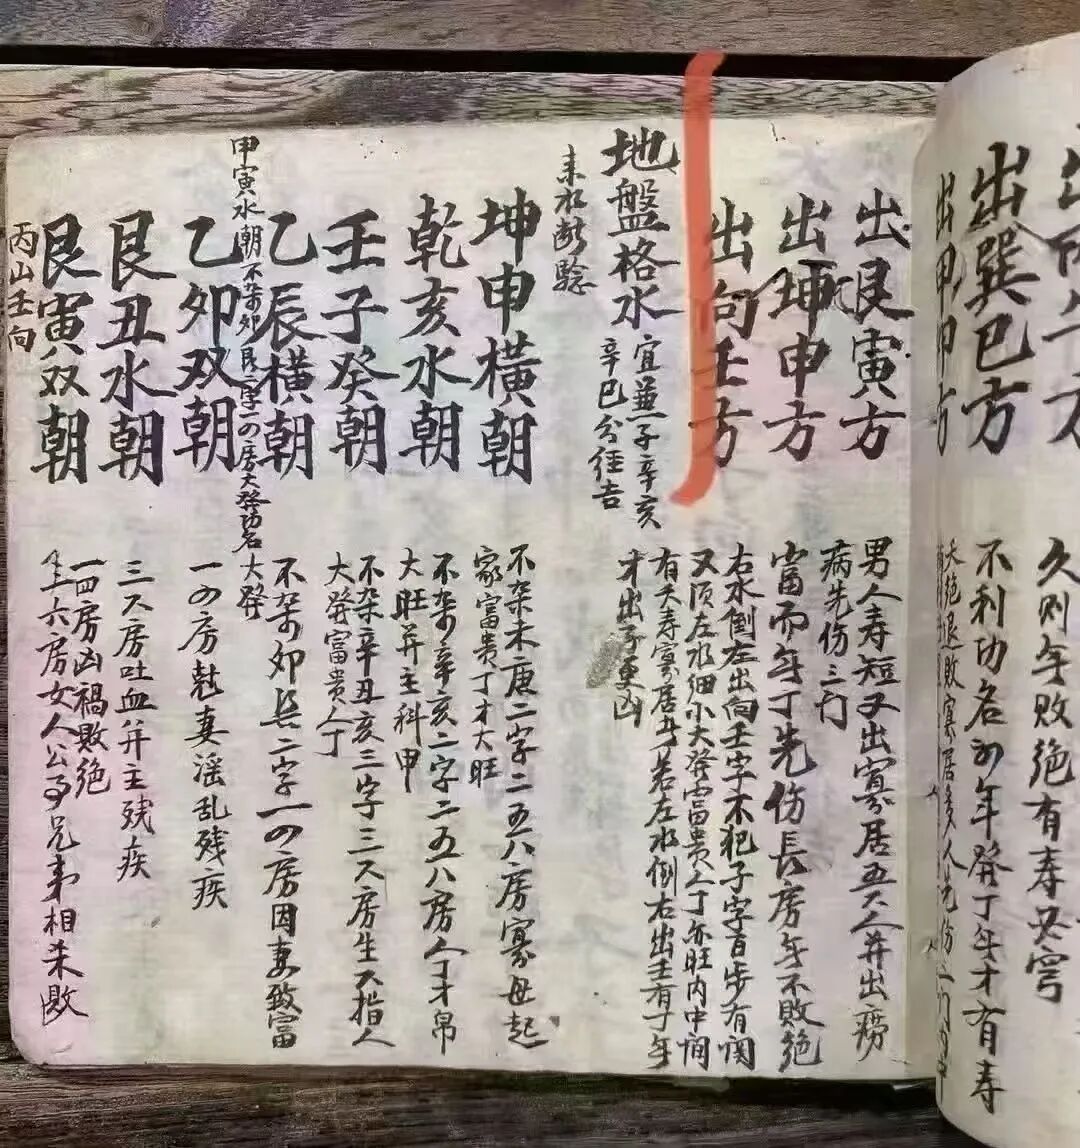 出巽巳方
不利功名四年發丁年才有寿
久则年败绝有寿必穹
出艮寅方
男人寿短又出寡居五六人并出痨
病先伤三门
出坤申方
富而年丁先伤长房年不敗绝
出向壬方
右水倒左出向壬字不犯子字百步有闌
又须左水细小大發富貴人丁亦旺内中间
有夭寿寡居
若左水倒右出壬有丁年
才出
更凶
地盤格水
宜並子辛亥
辛巳分徑吉
来水断驗
坤申横朝
不杂未庚二字二五八房寡母起
家富貴丁才大旺
乾亥水朝
不杂辛亥二字二五八房人丁才帛
大旺并主科甲
壬子癸朝
不杂辛丑亥三字三六房生六指人
大發富貴人丁
乙辰横朝
不杂卯巽二字一四房因妻致富
大發
甲寅水朝不杂卯艮
一四房大發功名
乙卯双朝
一四房尅妻淫乱残疾
艮丑水朝
三六房吐血并主残疾
艮寅双朝
一四房凶禍敗绝
六房女人公事兄弟相杀敗
丙山壬向